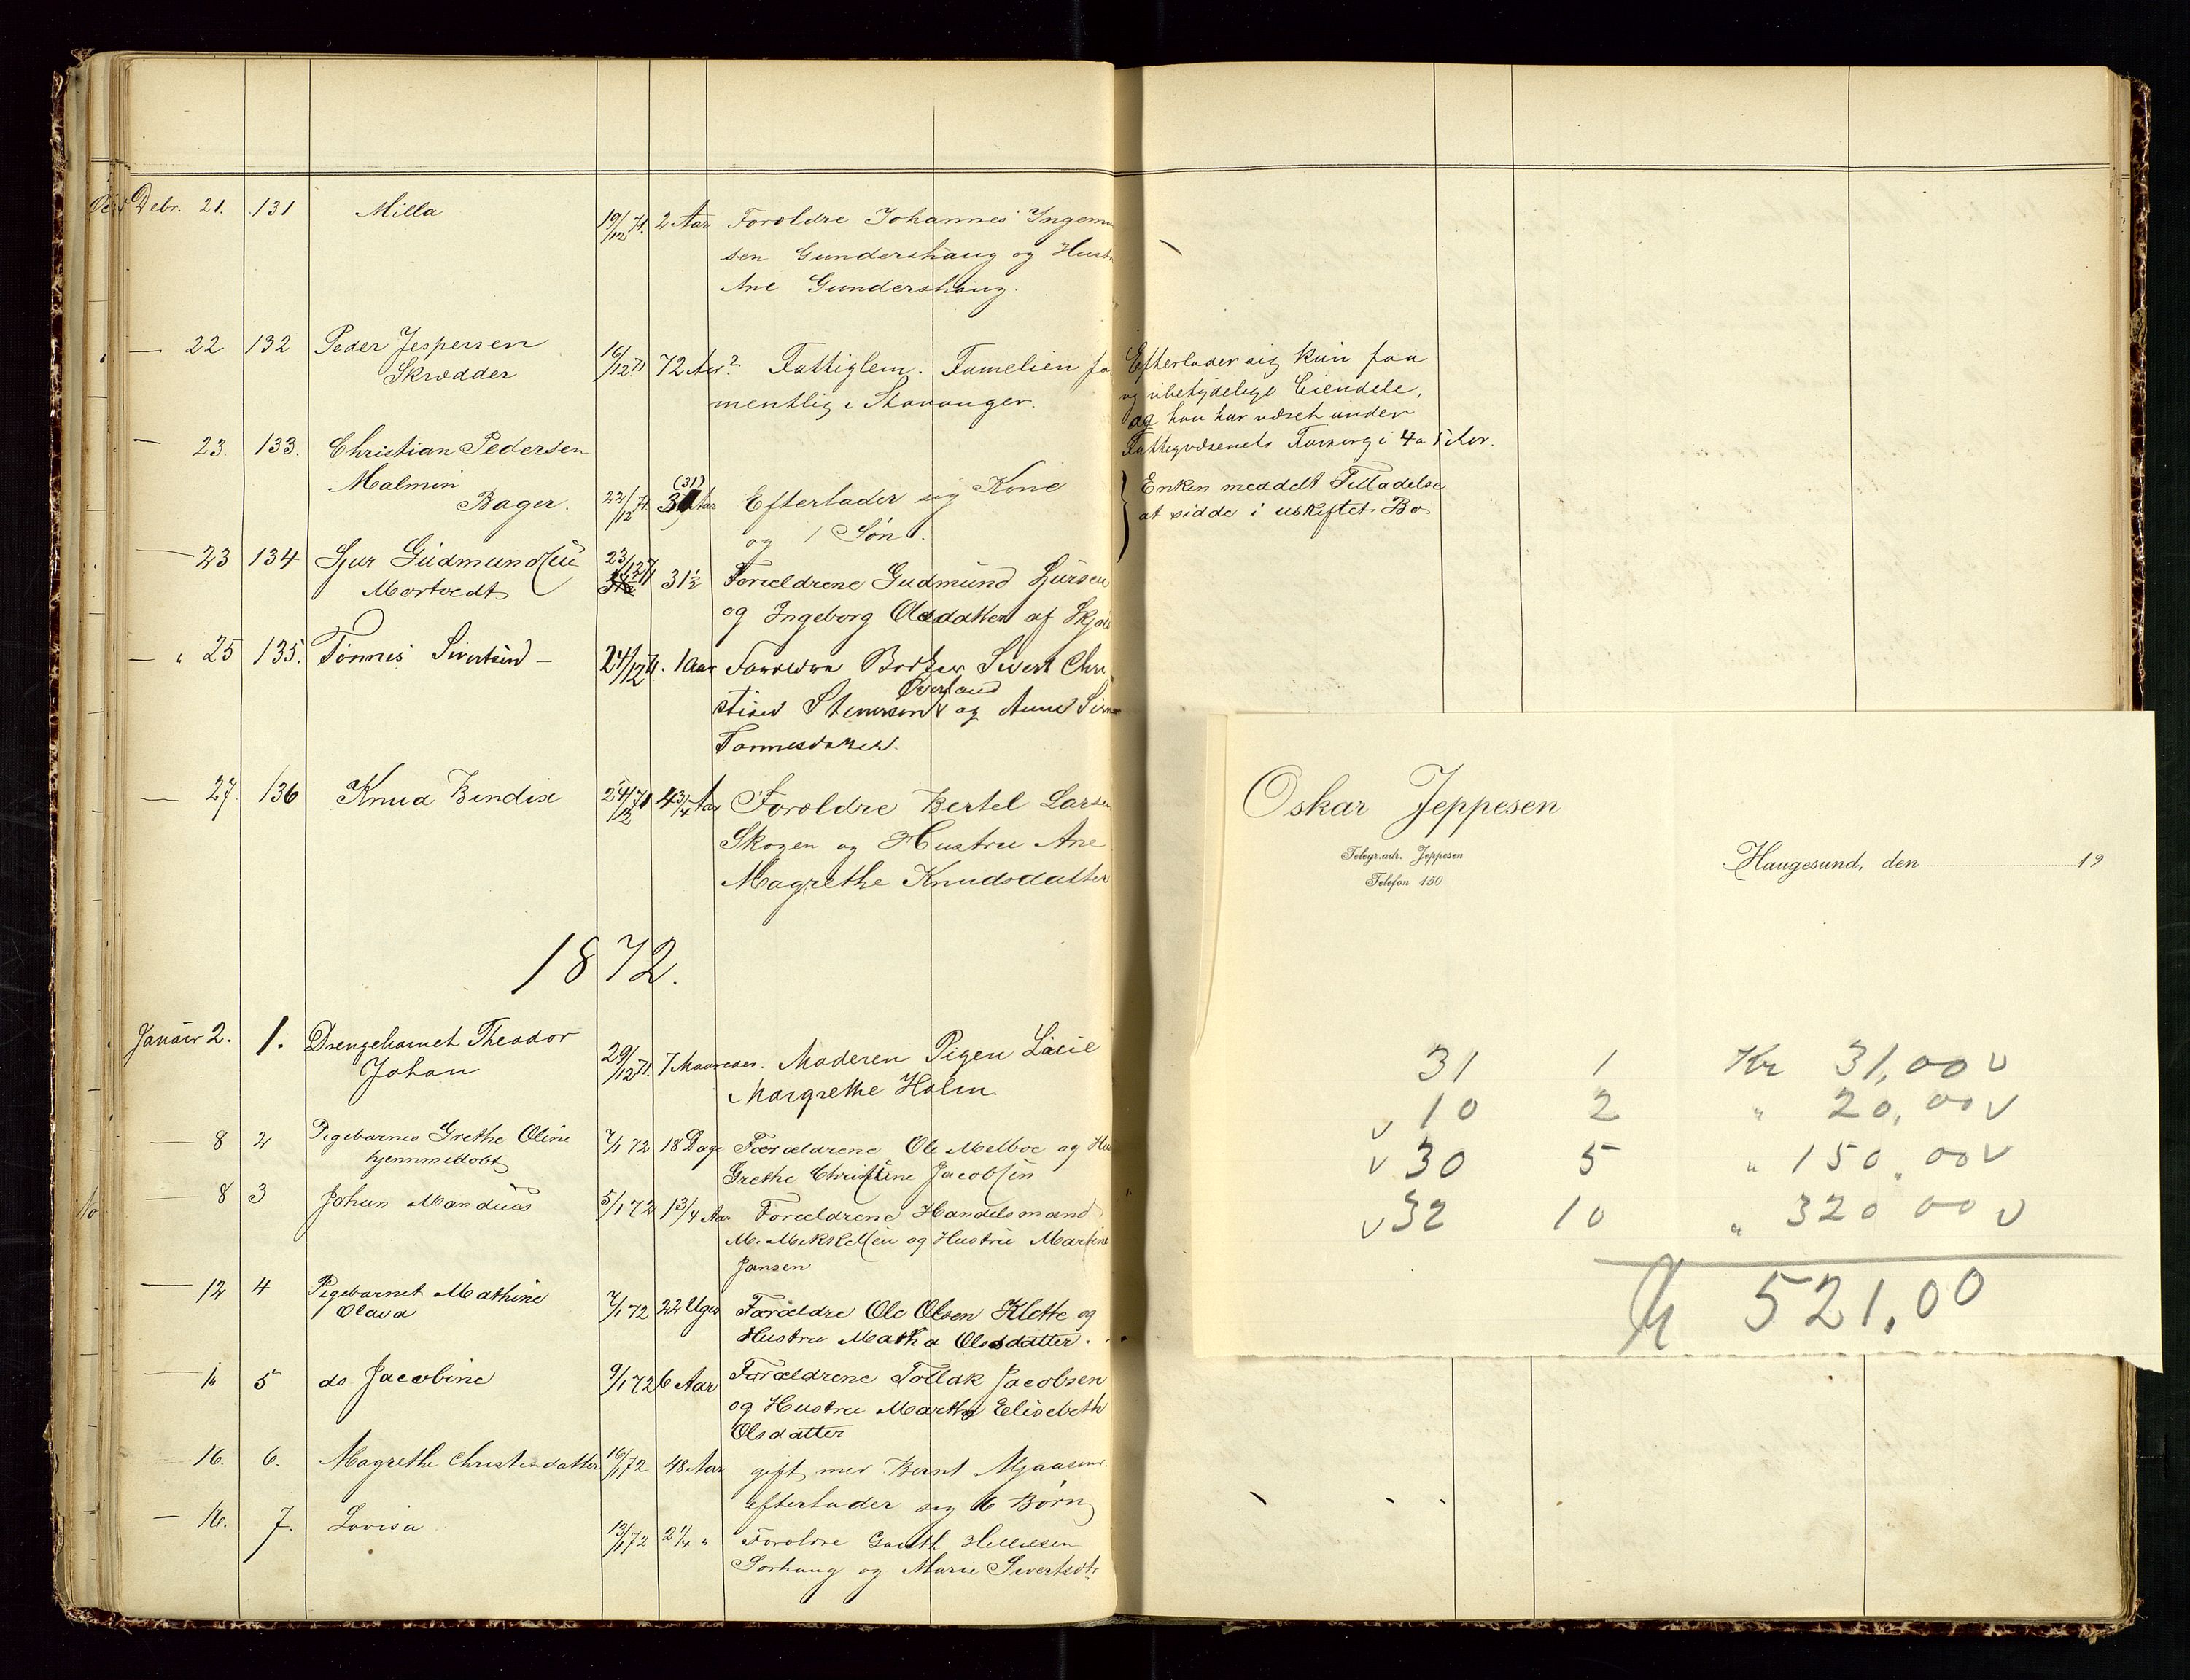 Debr. 21. 131 Milla 19/12 71. 2 Aar Foroldre Johannes Ingem
sen Gundershaug og Hust
Ane Gundershaug.
— 22 132 Peder Jespersen 16/12 71 72 Aar? Fattiglem. Famelien fo
Skrædder
mentlig i Stavanger.
Efterlader sig kun faa
og ubetydelige Eiendele,
og han har været under
Fattigvæsenets Forsorg i 4 a 5 Aar.
— 23. 133. Christian Pedersen
Malmin
Bager. 22/12 71 (31) Aar Efterlader sig Kone
og 1 Søn.
Enken meddelt Tilladelse
at sidde i uskiftet Bo
— 23 134 Sjur Gudmundsen 23/12 71 31½ Forældrene Gudmund
Mortvedt
og Ingeborg Olsdatter af
— " 25 135. Tønnes Sivertsen — 24/12 71. 1 Aar Sivert Chri
stian og
Tønnesdatter.
— 27 136 Knud Bendix 24/12 71 4 3/4 Aar Foroldre Bertel Larsen
Skogen og Hustru Ane
Magrethe Knudsdatter
1872.
Januar 2. 1. Drengebarnet Theodor
Johan 29/12 71. 7 Maaneder. Moderen Pigen
Margrethe Holm.
— 8 2 Pigebarnet Grethe Oline 7/1 72 18 Dage Forældrene Ole Melboe og Hu
hjemmedøbt
Grethe Christine Jacobsen
— 8 3 Johan Mandius 5/1 72 1 3/4 Aar Forældrene Handelsmand
M. Mikkelsen og Hustru Martine
Jansen
— 12 4 Pigebarnet Mathine
Olava 7/1 72 22 Uger Forældre Ole Olsen Klette og
Hustru Martha Olsdatter.
— 5 do Jacobine 9/1 72 6 Aar Forældrene Tollak Jacobsen
og Hustru Martha Elisebeth
Olsdatter
— 16. 6. Magrethe Christensdatter 10/1 72 48 Aar gift med Bernt
efterlader sig 6 Børn
— 16. 7. Lovisa 13/1 72 2 1/4 " Foroldre
Sørhaug og Marie Sivertsdtr
Oskar Jeppesen
Telegr.adr. Jeppesen
Telefon 150
Haugesund, den 19
31 1 Kr 31,00 v
v 10 2 " 20,00 v
v 30 5 " 150.00 v
v 32 10 " 320 00 v
Kr 521,00